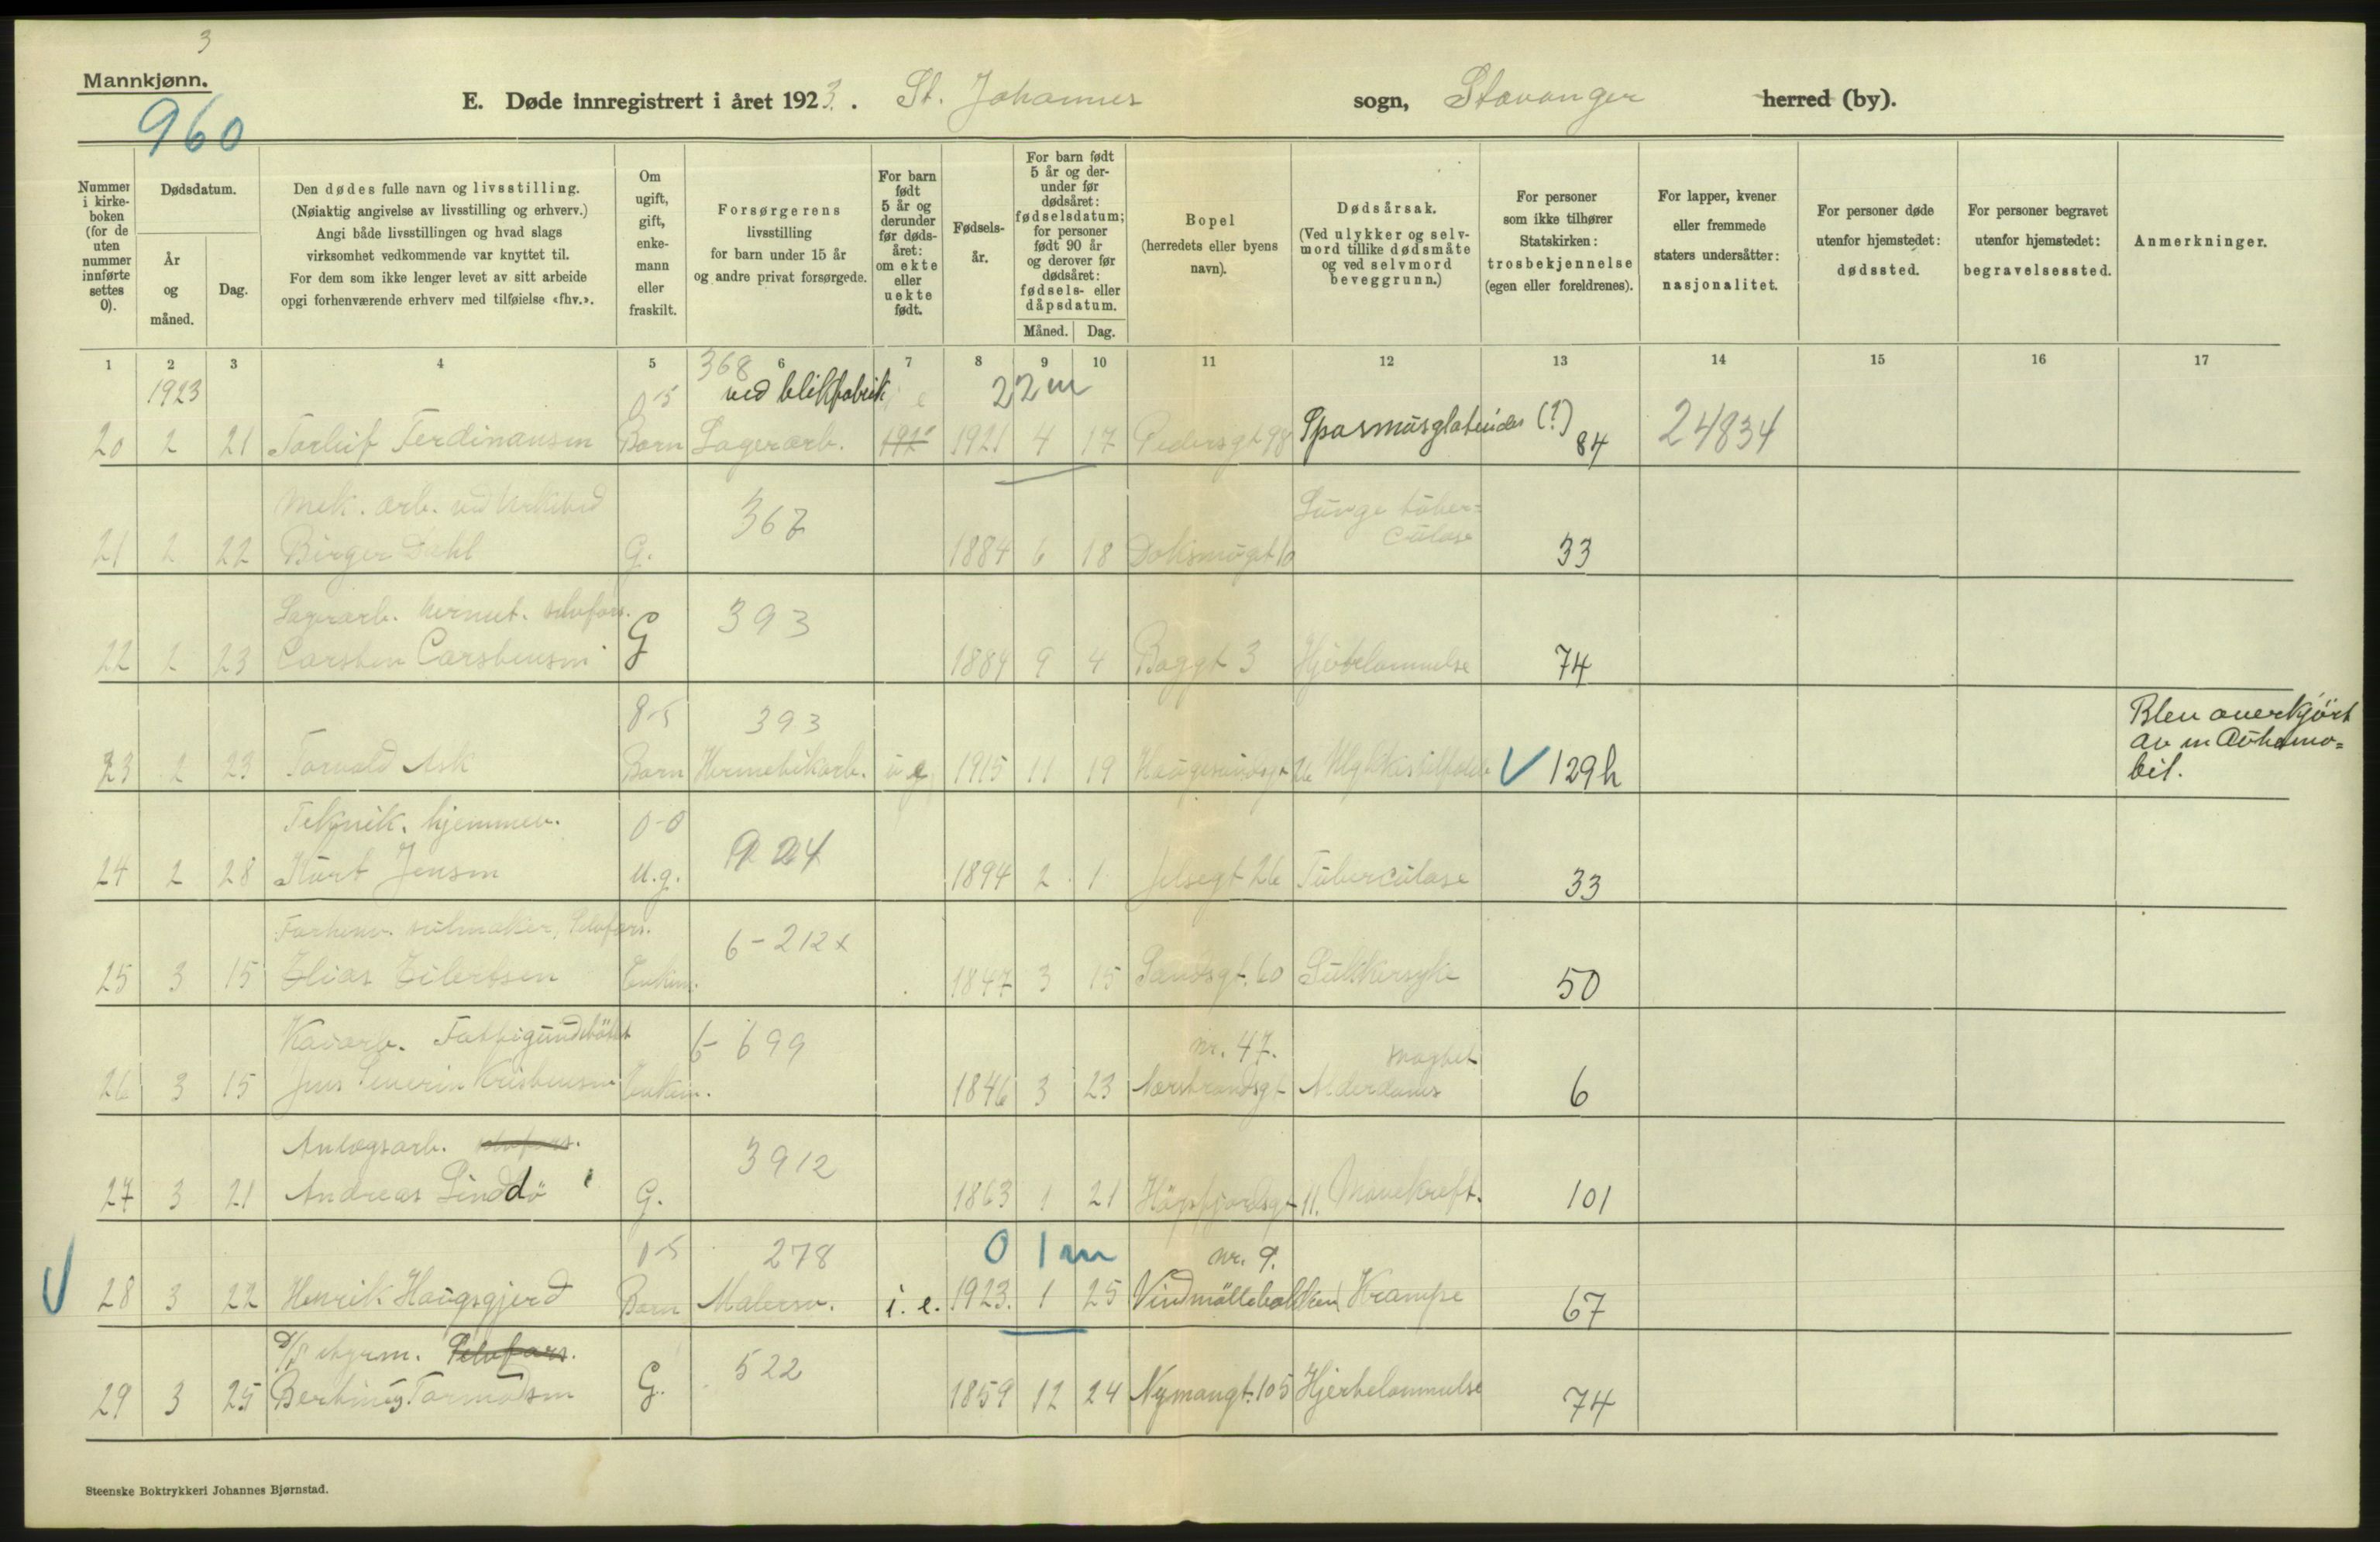 3
Mannkjønn.
960
E. Døde innregistrert i året 1923. St. Johannes sogn, Stavanger herred (by).
Nummer i kirkeboken (for de uten nummer innførte settes 0).
Dødsdatum.
År og måned.
Dag.
Den dødes fulle navn og livsstilling.
(Nøiaktig angivelse av livsstilling og erhverv.)
Angi både livsstillingen og hvad slags
virksomhet vedkommende var knyttet til.
For dem som ikke lenger levet av sitt arbeide
opgi forhenværende erhverv med tilføielse «fhv.».
Om ugift, gift, enkemann eller fraskilt.
Forsørgerens
livsstilling
for barn under 15 år
og andre privat forsørgede.
For barn født 5 år og derunder før dødsåret: om ekte eller uekte født.
Fødselsår.
For barn født 5 år og derunder før dødsåret: fødselsdatum; for personer født 90 år og derover før dødsåret: fødsels- eller dåpsdatum.
Måned. Dag.
Bopel
(herredets eller byens
navn).
Dødsårsak.
(Ved ulykker og selvmord tillike dødsmåte og ved selvmord beveggrunn.)
For personer
som ikke tilhører
Statskirken:
trosbekjennelse
(egen eller foreldrenes).
For lapper, kvener
eller fremmede
staters undersåtter:
nasjonalitet.
For personer døde
utenfor hjemstedet:
dødssted.
For personer begravet
utenfor hjemstedet:
begravelsessted.
Anmerkninger.
1 2 3 4 5 6 7 8 9 10 11 12 13 14 15 16 17
1923 0-5 368 ved blikfabrik e 22 m
20 2 21 Torleif Ferdinansen Barn Lagerarb. 1921 4 17 Pedersgt 98 Spasmusglotidis (?) 84 24834
Mek. arb. ved verksted 367 Lunge tuber=
culose
21 2 22 Birger Dahl G. 1884 6 18 33
Lagerarb. hermet. selvfors. 393
22 2 23 Carsten Carstensen G 1884 9 4 Baggt 3 Hjertelammelse 74
8-5 393
23 2 23 Torvald Ask Barn Hermetikarb. e 1915 11 19 Haugesundsgt 26 129h Blev overkjört
av en Automo=
bil.
Teknik. hjemmev. 0-0 924
24 2 28 Kurt Jensen u.g. 1894 2 1 Jelsegt 26 Tuberculose 33
Forhenv. seilmaker, Selvfors. 6-212x
25 3 15 Elias Eilertsen Enkem. 1847 3 15 Sandsgt. 60 Sukkersyke 50
Kaiarb. Fattigunderstöttet 6-699 nr. 47.
26 3 15 Jens Severin Kristensen Enkem. 1846 3 23 Alderdoms 6
Anlægsarb. selvfors. 3912
27 3 21 Andreas Lindö G. 1863 1 21 Högsfjordsgt 11. Mavekreft. 101
0-5 278 0 1 m nr. 9.
28 3 22 Henrik Haugsgjerd Barn Malersv. i. e. 1923. 1 25 Vindmöllebakken Krampe 67
D/S styrm. Selvfors. 522
29 3 25 Bertinius Tormodsen G. 1859 12 24 Nymansgt. 105 Hjertelammelse 74
Steenske Boktrykkeri Johannes Bjørnstad.